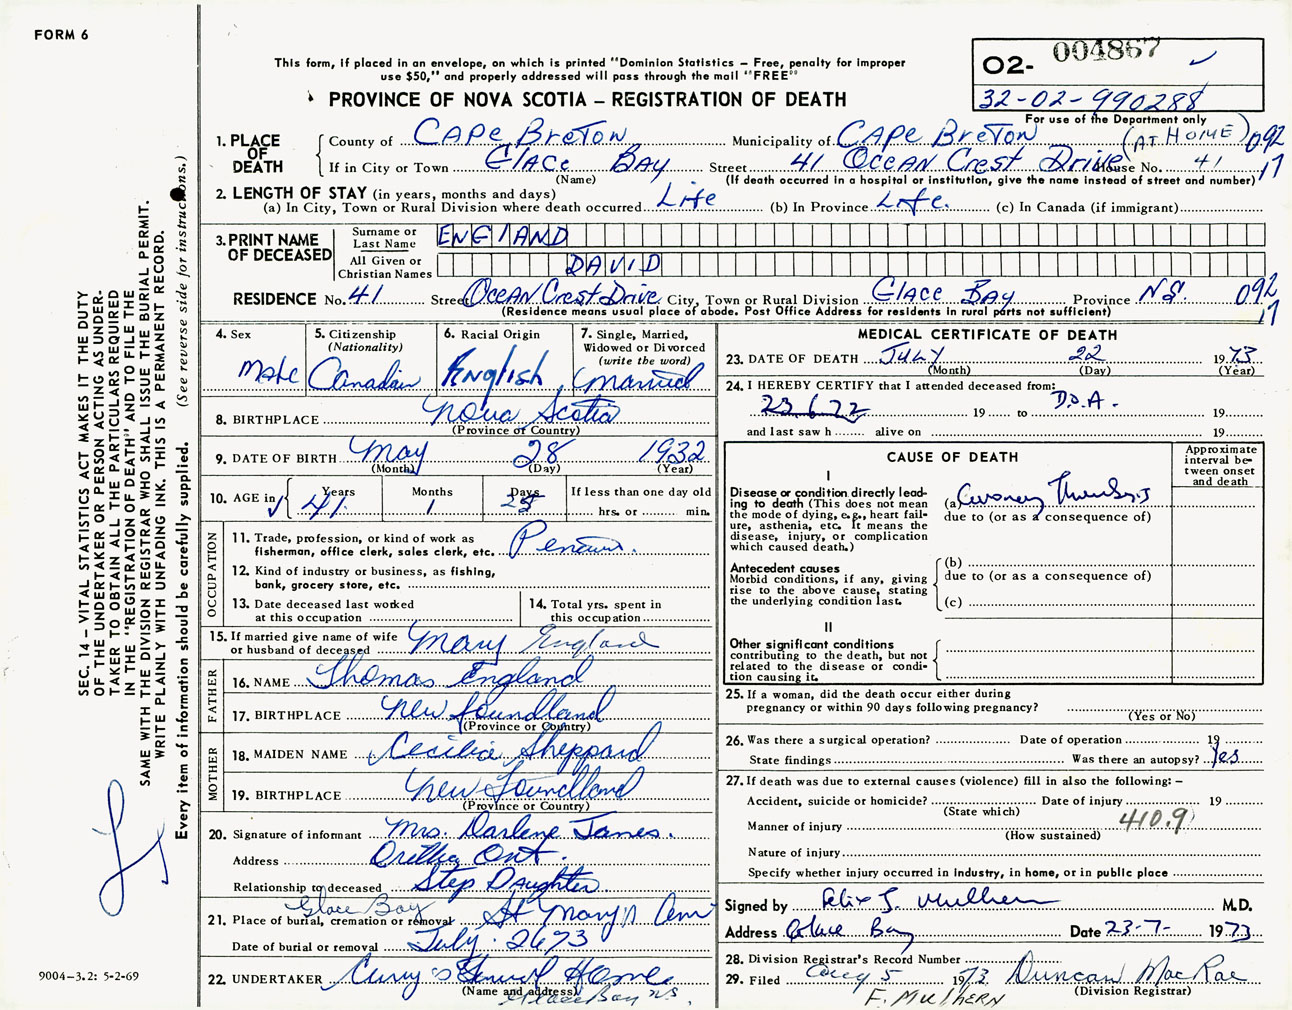 FORM 6
This form, if placed in an envelope, on which is printed "Dominion Statistics – Free, penalty for improper
use $50," and properly addressed will pass through the mail "FREE"
PROVINCE OF NOVA SCOTIA – REGISTRATION OF DEATH
O2- 004867
32-02-990288
For use of the Department only
1. PLACE OF DEATH
County of CAPE BRETON Municipality of CAPE BRETON (AT HOME) 092
If in City or Town GLACE BAY Street 41 OCEAN CREST DRIVE House No. 41 17
(Name) (If death occurred in a hospital or institution, give the name instead of street and number)
2. LENGTH OF STAY (in years, months and days)
(a) In City, Town or Rural Division where death occurred Life (b) In Province Life. (c) In Canada (if immigrant)
3. PRINT NAME OF DECEASED
Surname or Last Name ENGLAND
All Given or Christian Names DAVID
RESIDENCE No. 41 Street Ocean Crest Drive City, Town or Rural Division GLACE BAY Province N.S. 092
(Residence means usual place of abode. Post Office Address for residents in rural parts not sufficient) 17
4. Sex Male
5. Citizenship (Nationality) Canadian
6. Racial Origin English
7. Single, Married, Widowed or Divorced (write the word) Married
8. BIRTHPLACE Nova Scotia
(Province or Country)
9. DATE OF BIRTH May 28 1932
(Month) (Day) (Year)
10. AGE in Years 41 Months 1 Days If less than one day old
hrs. or min.
OCCUPATION
11. Trade, profession, or kind of work as
fisherman, office clerk, sales clerk, etc.
12. Kind of industry or business, as fishing,
bank, grocery store, etc.
13. Date deceased last worked
at this occupation
14. Total yrs. spent in
this occupation
15. If married give name of wife
or husband of deceased Mary England
FATHER
16. NAME Thomas England
17. BIRTHPLACE New Foundland
(Province or Country)
MOTHER
18. MAIDEN NAME Cecilia Sheppard
19. BIRTHPLACE New Foundland
(Province or Country)
20. Signature of informant Mrs. Darlene James.
Address Orillia Ont.
Relationship to deceased Step Daughter
Glace Bay
21. Place of burial, cremation or removal St Mary's Cem
Date of burial or removal July. 26 73
22. UNDERTAKER Curry's Funeral Home
(Name and address) Glace Bay N.S.
MEDICAL CERTIFICATE OF DEATH
23. DATE OF DEATH JULY 22 1973
(Month) (Day) (Year)
24. I HEREBY CERTIFY that I attended deceased from:
19 to D.O.A. 19
and last saw h alive on 19
CAUSE OF DEATH
Approximate interval between onset and death
I
Disease or condition directly lead-
ing to death (This does not mean
the mode of dying, e.g., heart fail-
ure, asthenia, etc. It means the
disease, injury, or complication
which caused death.)
(a) Coronary Thrombosis
due to (or as a consequence of)
Antecedent causes
Morbid conditions, if any, giving
rise to the above cause, stating
the underlying condition last.
(b)
due to (or as a consequence of)
(c)
II
Other significant conditions
contributing to the death, but not
related to the disease or condi-
tion causing it.
25. If a woman, did the death occur either during
pregnancy or within 90 days following pregnancy?
(Yes or No)
26. Was there a surgical operation? Date of operation 19
State findings Was there an autopsy? Yes
27. If death was due to external causes (violence) fill in also the following: –
Accident, suicide or homicide? Date of injury 19
(State which)
Manner of injury 410.9
(How sustained)
Nature of injury
Specify whether injury occurred in industry, in home, or in public place
Signed by Felix J. Mulhern M.D.
Address Glace Bay Date 23-7- 1973
28. Division Registrar's Record Number
29. Filed Aug 5 1973 Duncan MacRae
(Division Registrar)
F. MULHERN
SEC. 14 – VITAL STATISTICS ACT MAKES IT THE DUTY
OF THE UNDERTAKER OR PERSON ACTING AS UNDER-
TAKER TO OBTAIN ALL THE PARTICULARS REQUIRED
IN THE "REGISTRATION OF DEATH" AND TO FILE THE
SAME WITH THE DIVISION REGISTRAR WHO SHALL ISSUE THE BURIAL PERMIT.
WRITE PLAINLY WITH UNFADING INK. THIS IS A PERMANENT RECORD.
Every item of information should be carefully supplied. (See reverse side for instructions.)
9004-3.2: 5-2-69